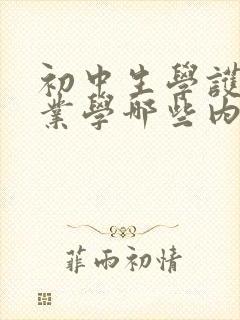 初中生學護
業學哪些內
菲雨初情